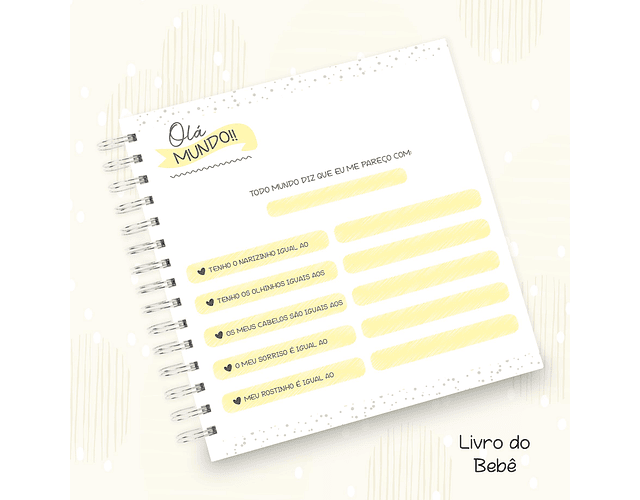 Olá
MUNDO!!
TODO MUNDO DIZ QUE EU ME PAREÇO COM:
TENHO O NARIZINHO IGUAL AO
TENHO OS OLHINHOS IGUAIS AOS
OS MEUS CABELOS SÃO IGUAIS AOS
O MEU SORRISO É IGUAL AO
MEU ROSTINHO É IGUAL AO
Livro do
Bebê